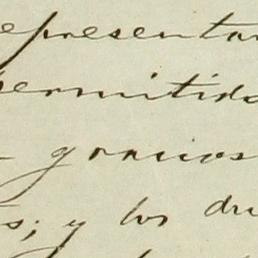 representan
permitido
gracias
s; y los du